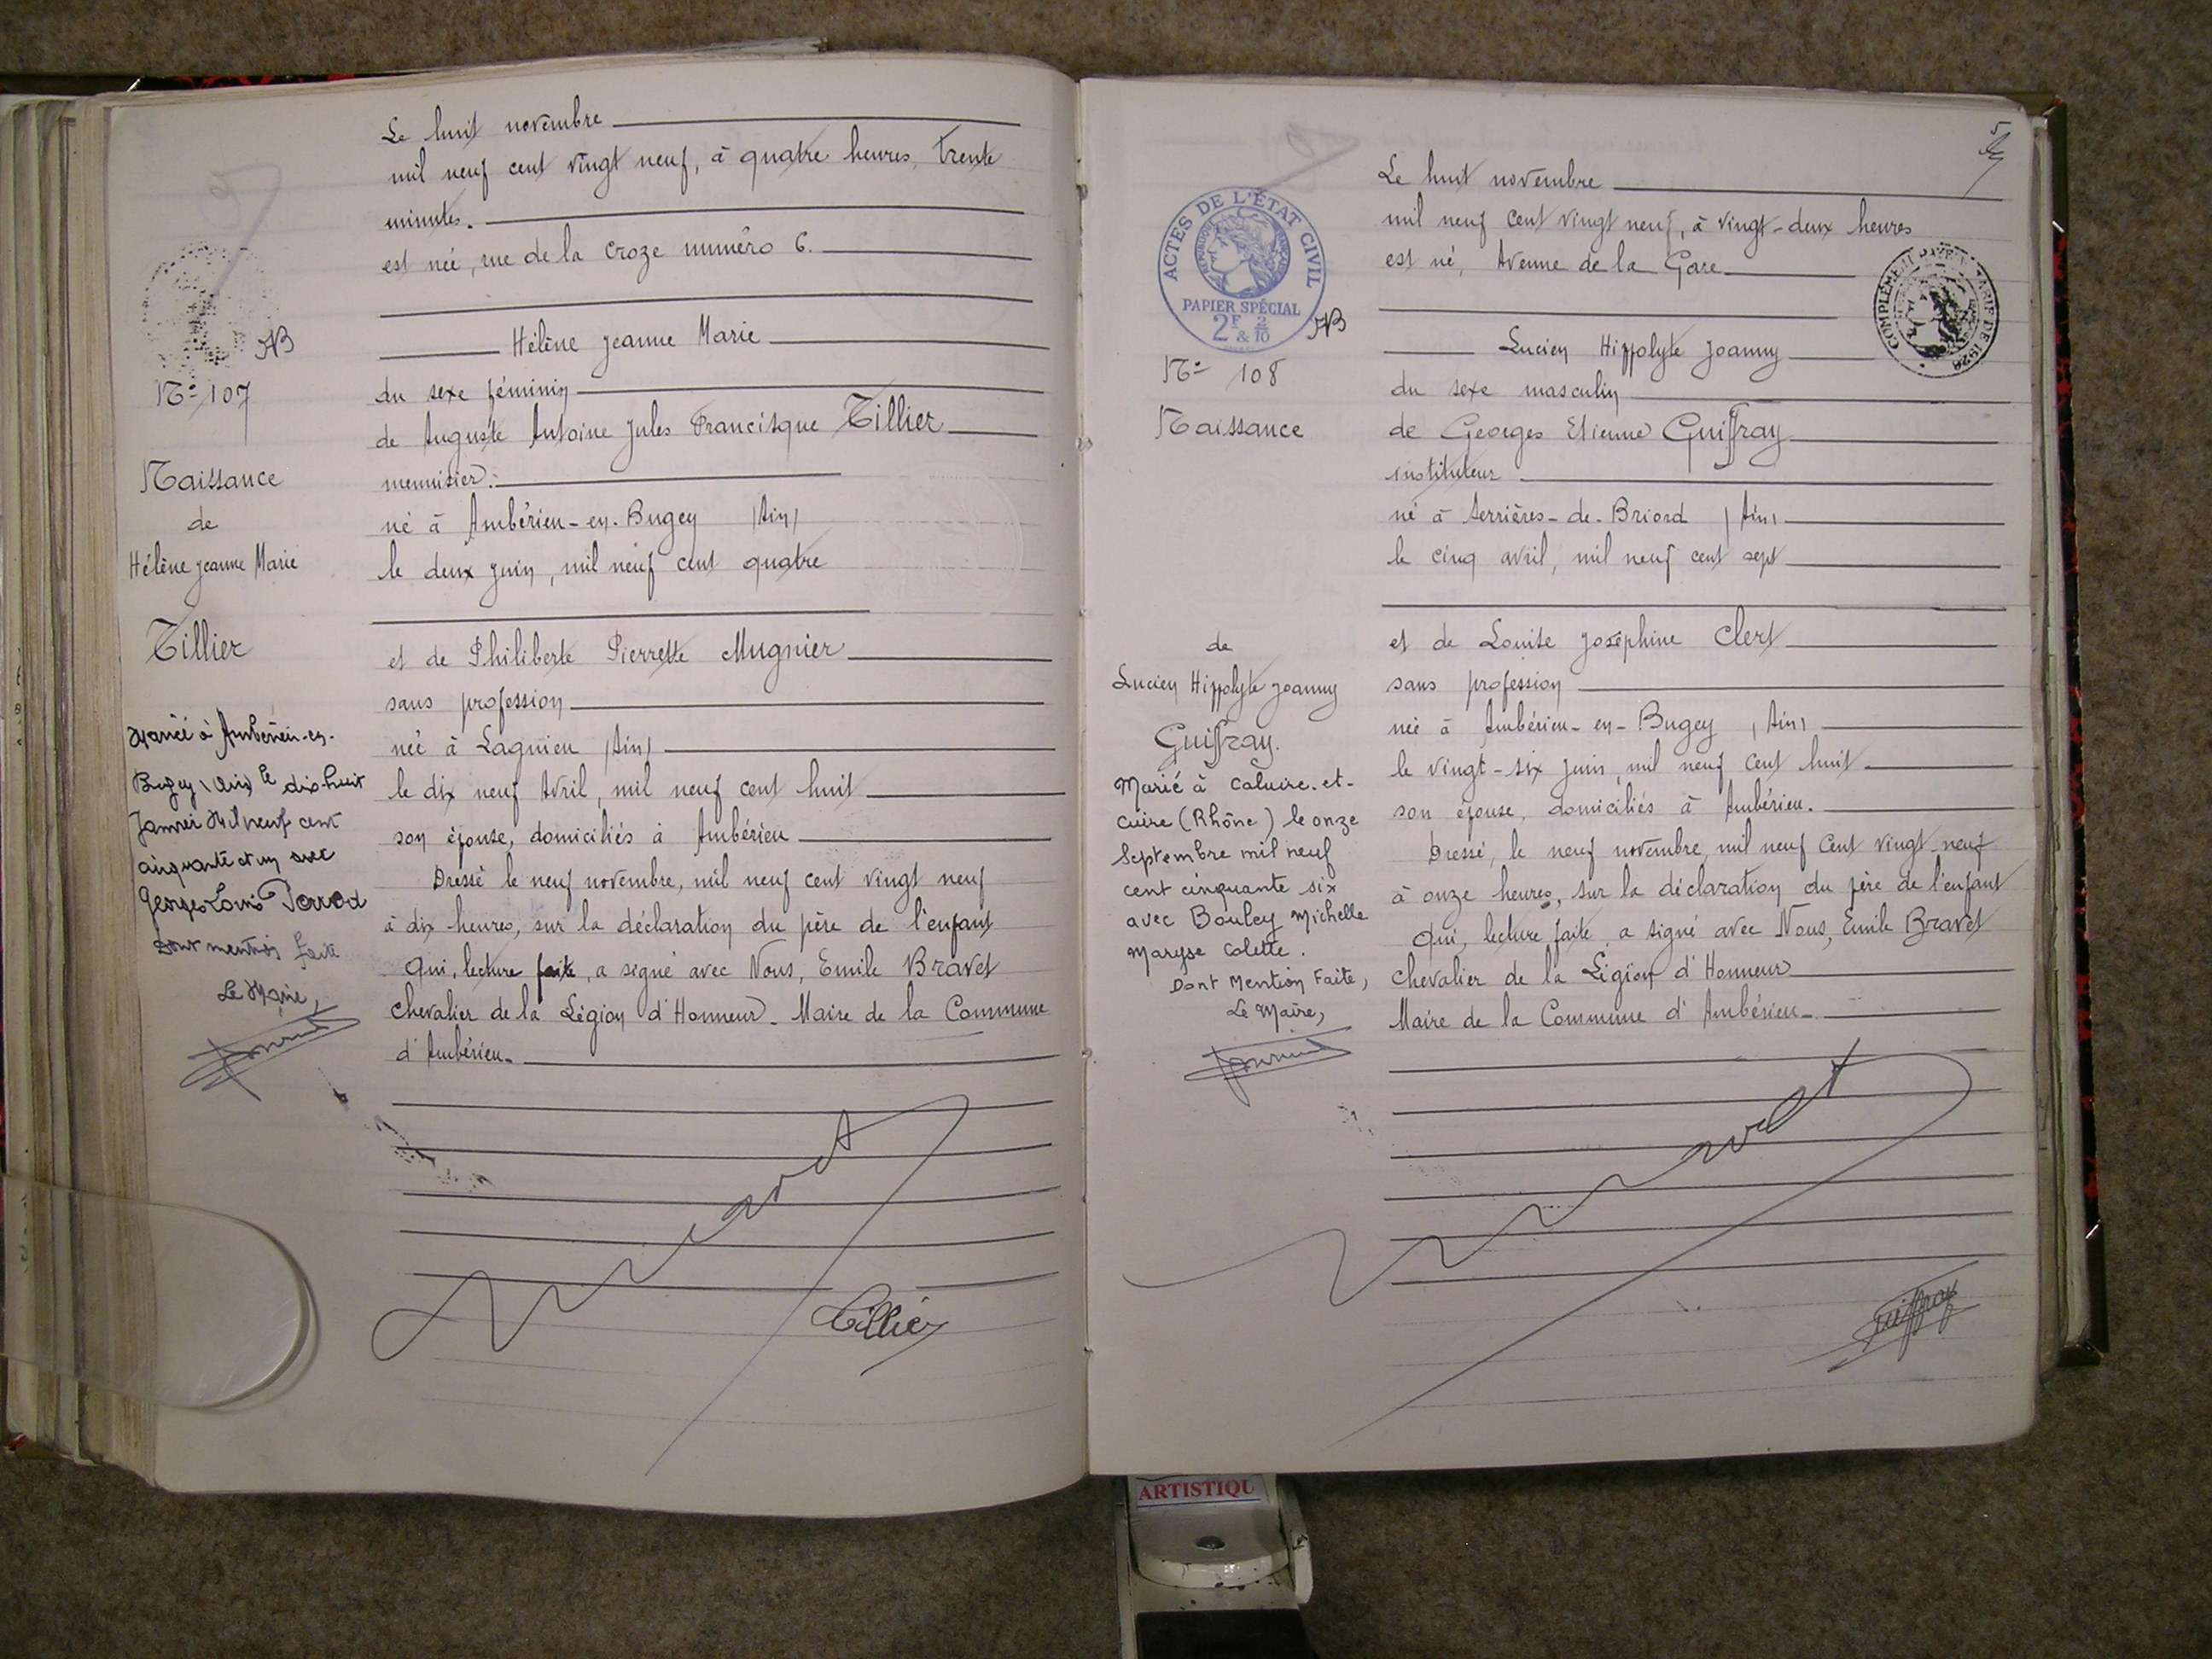 AB
N° 107
Naissance
de
Hélène Jeanne Marie
Tillier
Mariée à Ambérieu-en-
Bugey (Ain) le dix-huit
Janvier Mil neuf cent
cinquante et un avec
Georges Louis
Dont mention faite
Le Maire,
Le huit novembre
mil neuf cent vingt neuf, à quatre heures, trente
minutes.
est née, rue de la Croze numéro 6.
Hélène Jeanne Marie
du sexe féminin
de Auguste Antoine Jules Francisque Tillier
menuisier.
né à Ambérieu-en-Bugey (Ain)
le deux juin, mil neuf cent quatre
et de Philiberte Pierrette Mugnier
sans profession
née à Lagnieu (Ain)
le dix neuf Avril, mil neuf cent huit
son épouse, domiciliés à Ambérieu
Dressé le neuf novembre, mil neuf cent vingt neuf
à dix heures, sur la déclaration du père de l'enfant
Qui, lecture faite, a signé avec Nous, Emile Bravet
Chevalier de la Légion d'Honneur. Maire de la Commune
d'Ambérieu.
Tillier
ACTES DE L'ÉTAT CIVIL
RÉPUBLIQUE FRANÇAISE
PAPIER SPÉCIAL
2F & 2/10
AB
N° 108
Naissance
de
Lucien Hippolyte Joanny
Guiffray.
Marié à Caluire-et-
Cuire (Rhône) le onze
Septembre mil neuf
cent cinquante six
avec Bouley Michelle
Maryse Colette.
Dont Mention Faite,
Le Maire,
Le huit novembre
mil neuf cent vingt neuf, à vingt-deux heures
est né, Avenue de la Gare
Lucien Hippolyte Joanny
du sexe masculin
de Georges Etienne Guiffray
instituteur
né à Serrières-de-Briord (Ain)
le cinq avril, mil neuf cent sept
et de Louise Joséphine Clert
sans profession
née à Ambérieu-en-Bugey (Ain)
le vingt-six juin, mil neuf cent huit
son épouse, domiciliés à Ambérieu.
Dressé, le neuf novembre, mil neuf cent vingt-neuf
à onze heures, sur la déclaration du père de l'enfant
Qui, lecture faite, a signé avec Nous, Emile Bravet
Chevalier de la Légion d'Honneur
Maire de la Commune d'Ambérieu.
Guiffray
ARTISTIQU